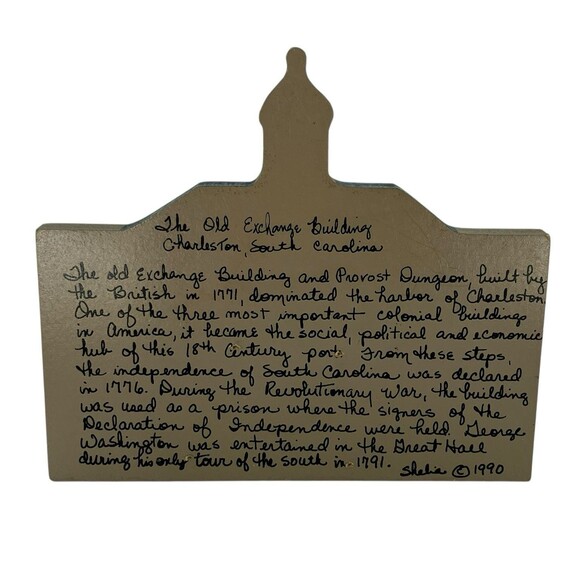 The Old Exchange Building
Charleston, South Carolina
The old Exchange Building and Provost Dungeon, built by
the British in 1771, dominated the harbor of Charleston.
One of the three most important colonial buildings
in America, it became the social, political and economic
hub of this 18th Century port. From these steps,
the independence of South Carolina was declared
in 1776. During the Revolutionary War, the building
was used as a prison where the signers of the
Declaration of Independence were held. George
Washington was entertained in the Great Hall
during his only tour of the south in 1791.
Shelia © 1990